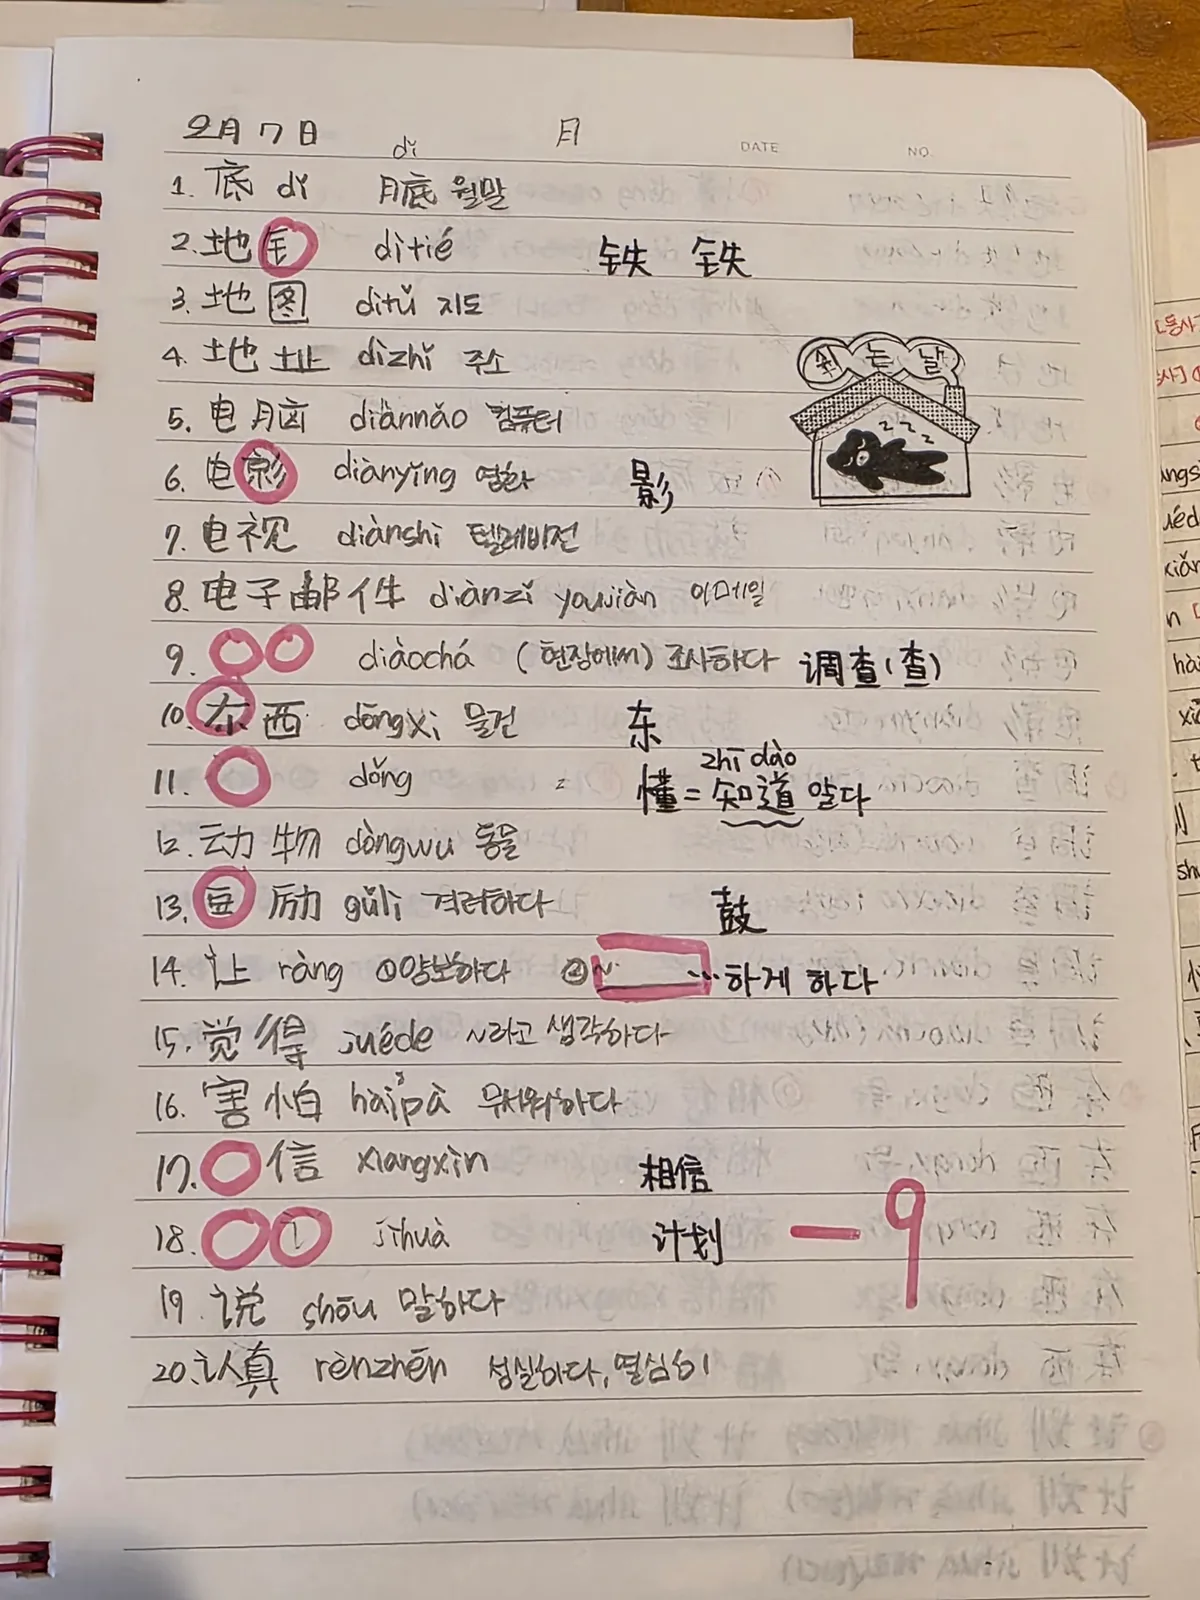 2月7日 月 DATE NO.
dǐ
1. 底 dǐ 月底 월말
2. 地钅 dìtiě 铁 铁
3. 地图 dìtǔ 지도
4. 地址 dìzhǐ 주소
쉬는날
5. 电脑 diànnǎo 컴퓨터
zzZ
6. 电影 diànyǐng 영화 影
7. 电视 diànshì 텔레비전
8. 电子邮件 diànzǐ yóujiàn 이메일
9. diàochá (현장에써) 조사하다 调查(查)
10. 东西 dōngxi 물건 东
zhī dào
11. dǒng = 懂=知道 알다
12. 动物 dòngwu 동물
13. 壴励 gǔlì 격려하다 鼓
14. 让 ràng ①양보하다 ②~ …하게 하다
15. 觉得 juéde ~라고 생각하다
16. 害怕 hàipà 무서워하다
17. 信 xiangxìn 相信
18. jìhuà 计划 -9
19. 说 shōu 말하다
20. 认真 rènzhēn 성실하다, 열심히